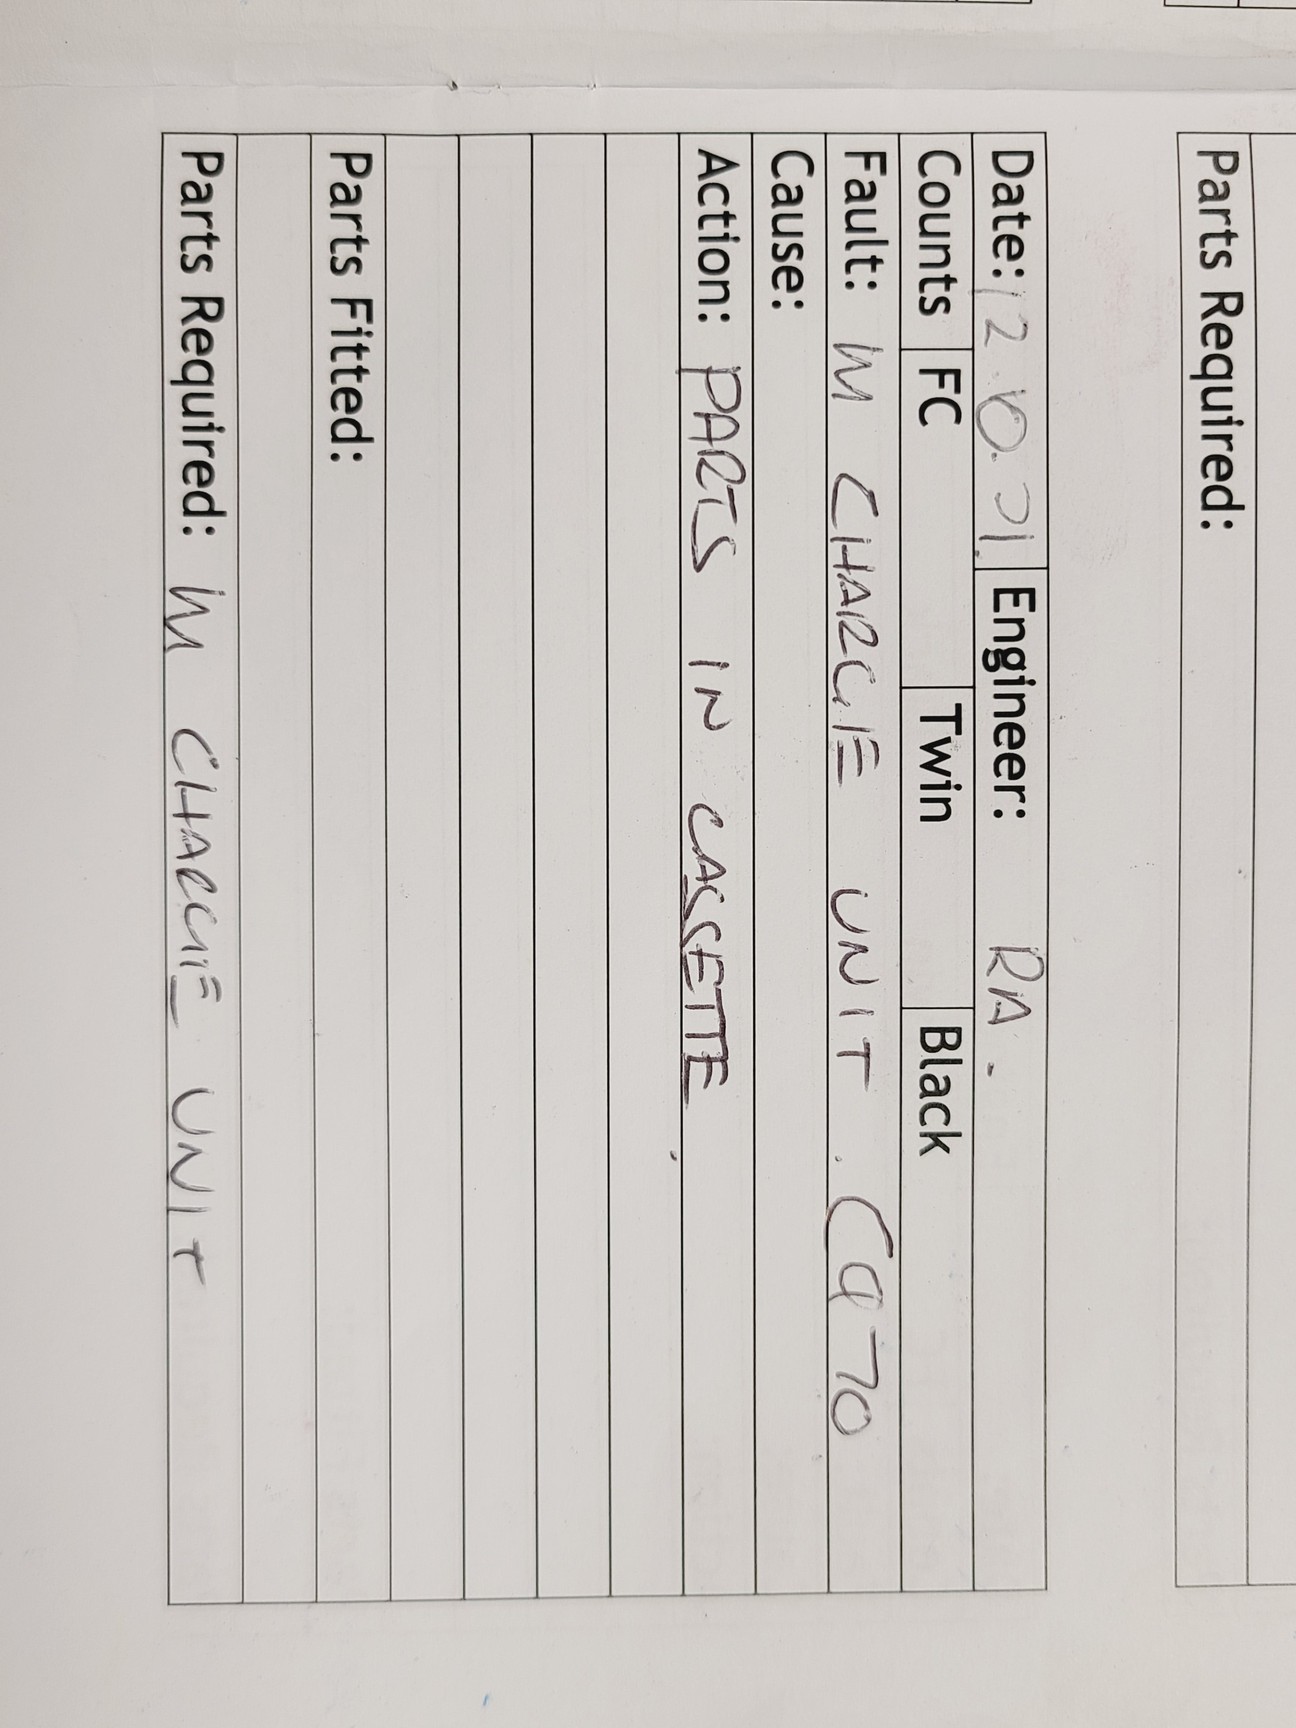 Parts Required:
Date: 12.10.21. Engineer: RA.
Counts FC Twin Black
Fault: M CHARGE UNIT. C970
Cause:
Action: PARTS IN CASSETTE
Parts Fitted:
Parts Required: M CHARGE UNIT